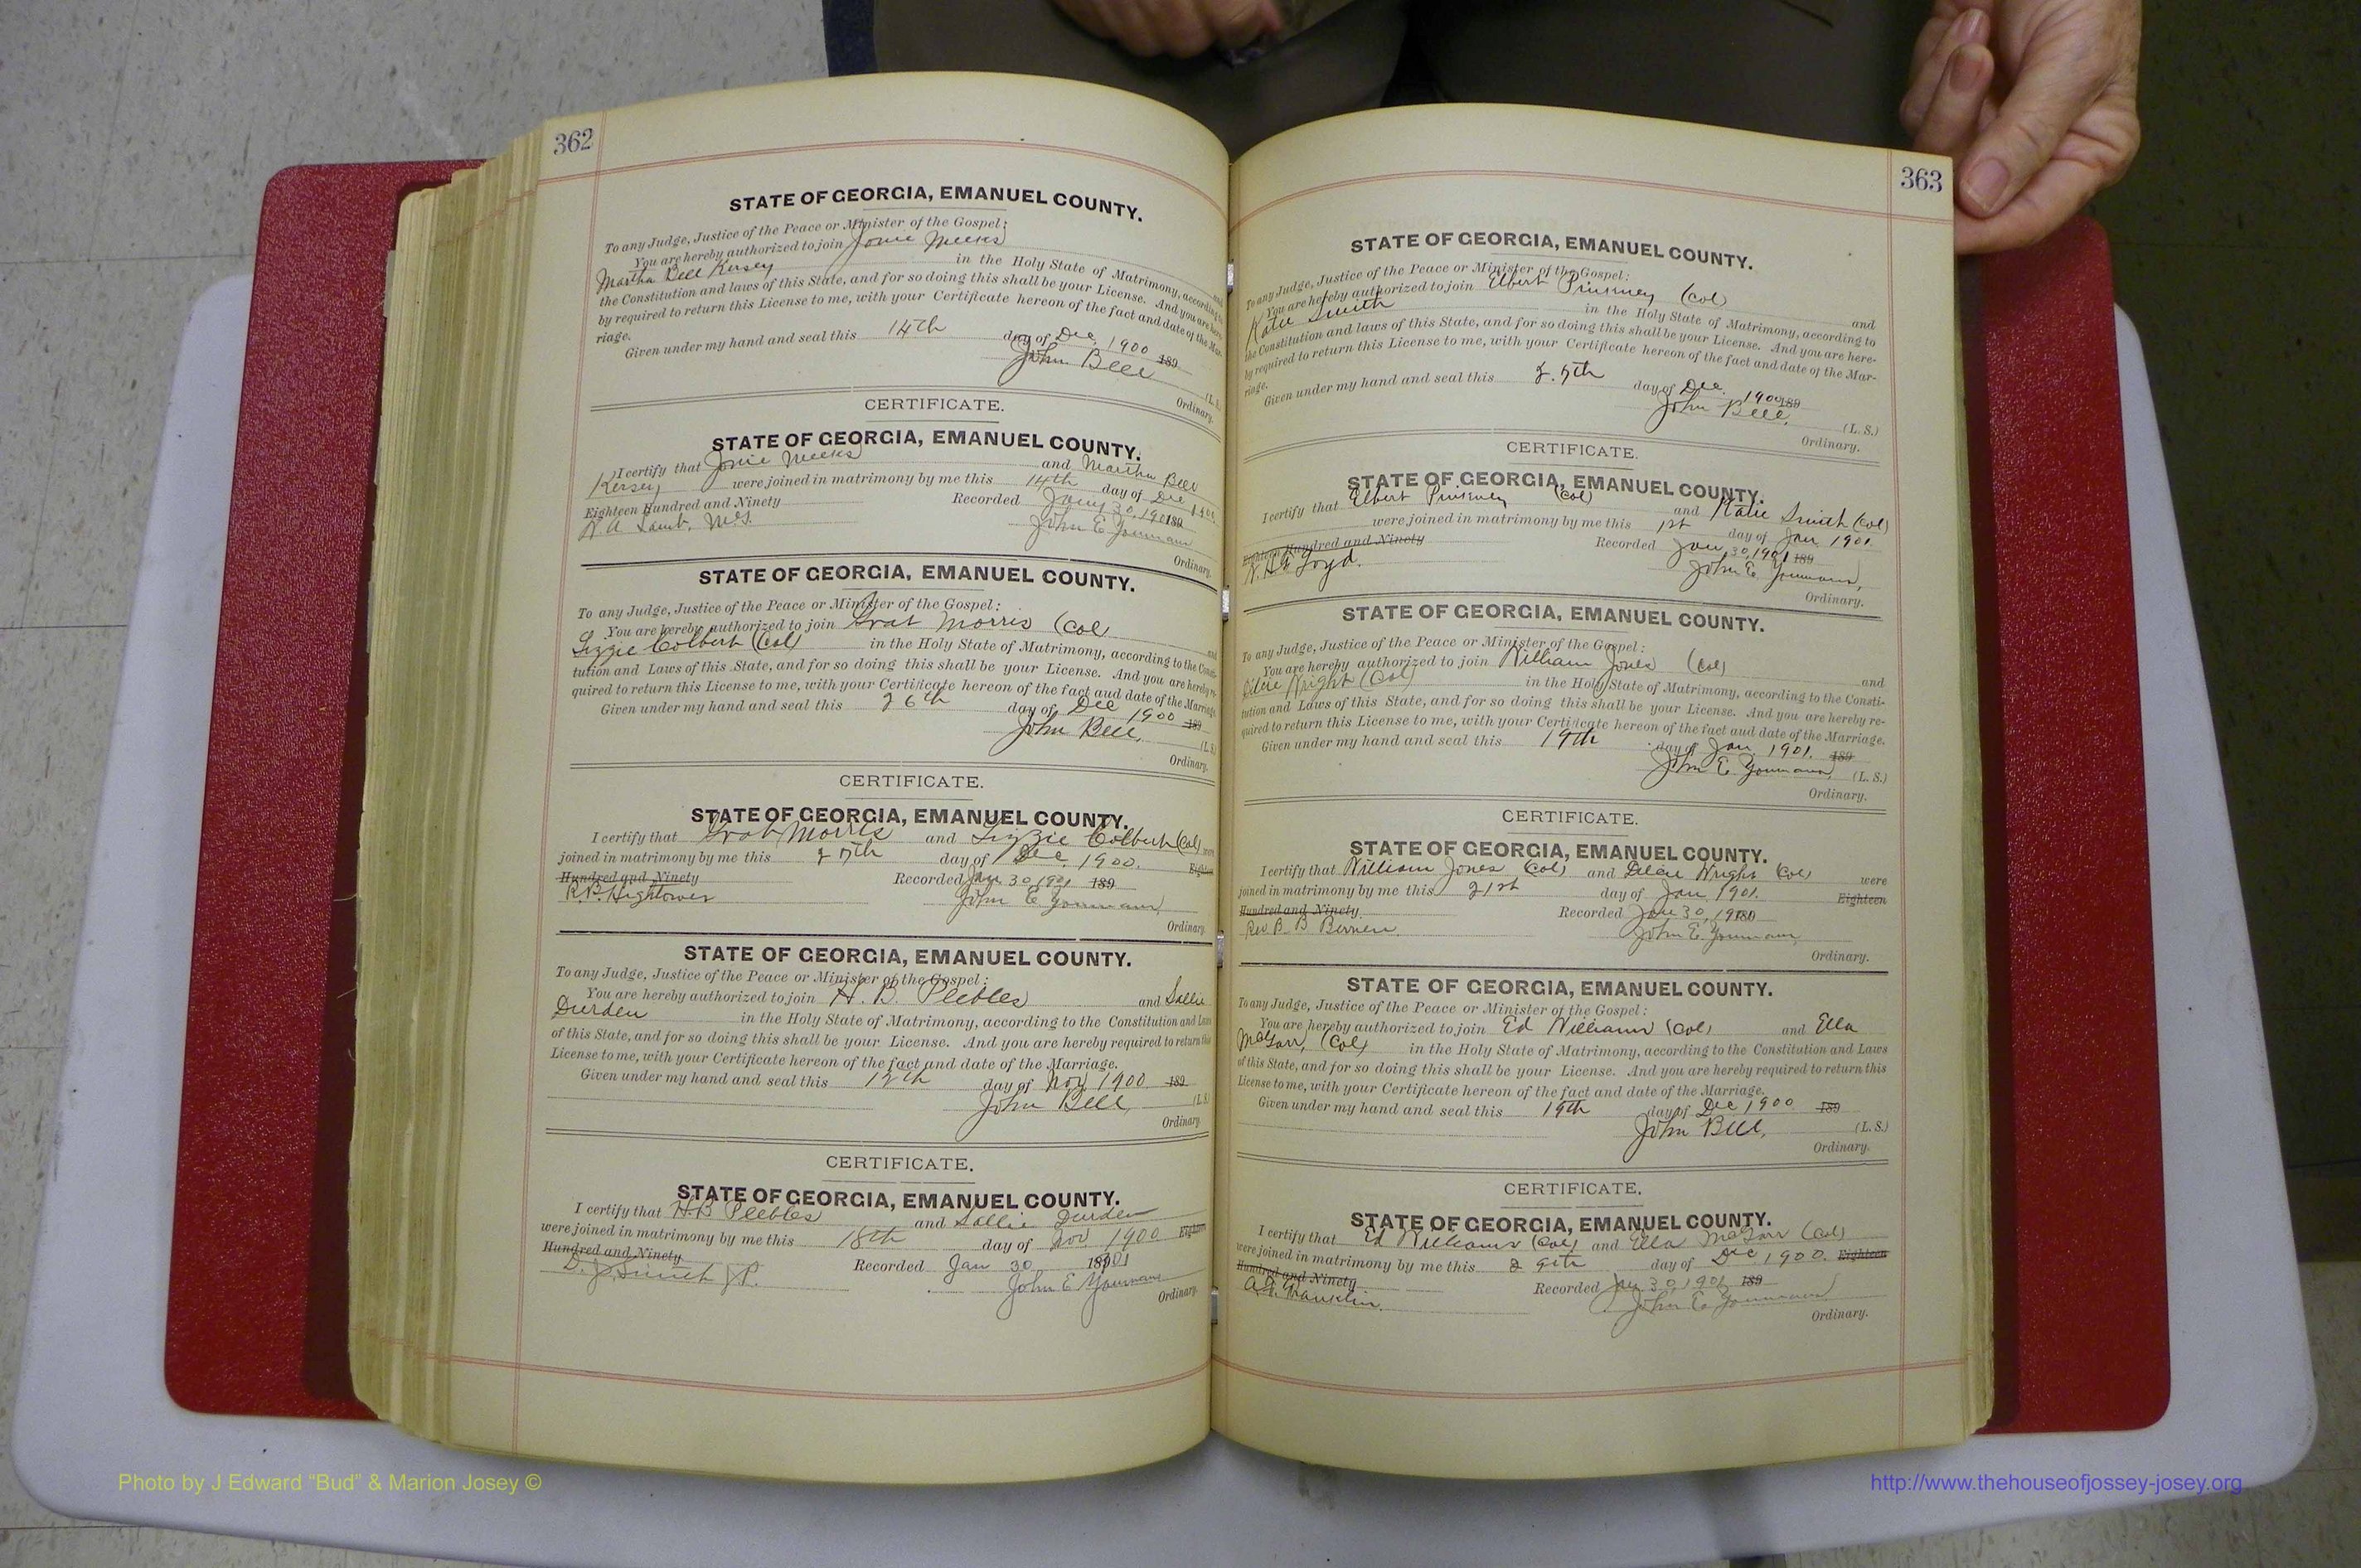 362
STATE OF GEORGIA, EMANUEL COUNTY.
To any Judge, Justice of the Peace or Minister of the Gospel:
You are hereby authorized to join Josie Meeks and
Martha Bell Kersey in the Holy State of Matrimony, according to
the Constitution and laws of this State, and for so doing this shall be your License. And you are here-
by required to return this License to me, with your Certificate hereon of the fact and date of the Mar-
riage.
Given under my hand and seal this 14th day of Dec, 1900 189
John Bell (L.S.
Ordinary.
CERTIFICATE.
STATE OF GEORGIA, EMANUEL COUNTY.
I certify that Josie Meeks and Martha Bell
Kersey were joined in matrimony by me this 14th day of Dec
Eighteen Hundred and Ninety Recorded Jany 30, 1901 189 1900.
R. A. Lamb, M.G. John E Youmans
Ordinary.
STATE OF GEORGIA, EMANUEL COUNTY.
To any Judge, Justice of the Peace or Minister of the Gospel:
You are hereby authorized to join Morris (Col and
Lizzie Colbert (Col) in the Holy State of Matrimony, according to the Consti-
tution and Laws of this State, and for so doing this shall be your License. And you are hereby re-
quired to return this License to me, with your Certificate hereon of the fact and date of the Marriage.
Given under my hand and seal this 26th day of Dec 1900 189
John Bell, (L.S.
Ordinary.
CERTIFICATE.
STATE OF GEORGIA, EMANUEL COUNTY.
I certify that Morris and Lizzie Colbert (Col) were
joined in matrimony by me this 27th day of Dec, 1900. Eighteen
Hundred and Ninety Recorded Jan 30 1901 189
R. B. Hightower John E Youmans
Ordinary.
STATE OF GEORGIA, EMANUEL COUNTY.
To any Judge, Justice of the Peace or Minister of the Gospel:
You are hereby authorized to join H. B. Peebles and Sallie
Durden in the Holy State of Matrimony, according to the Constitution and Laws
of this State, and for so doing this shall be your License. And you are hereby required to return this
License to me, with your Certificate hereon of the fact and date of the Marriage.
Given under my hand and seal this 12th day of Nov 1900 189
John Bell, (L.S.
Ordinary.
CERTIFICATE.
STATE OF GEORGIA, EMANUEL COUNTY.
I certify that H.B Peebles and Sallie Durden
were joined in matrimony by me this 18th day of Nov 1900 Eighteen
Hundred and Ninety Recorded Jan 30 1901
D. J. Smith J.P. John E Youmans
Ordinary.
363
STATE OF GEORGIA, EMANUEL COUNTY.
To any Judge, Justice of the Peace or Minister of the Gospel:
You are hereby authorized to join Elbert Pinkney (Col) and
Katie Smith in the Holy State of Matrimony, according to
the Constitution and laws of this State, and for so doing this shall be your License. And you are here-
by required to return this License to me, with your Certificate hereon of the fact and date of the Mar-
riage.
Given under my hand and seal this day of Dec. 1900 189
John Bell, (L. S.)
Ordinary.
CERTIFICATE.
STATE OF GEORGIA, EMANUEL COUNTY.
I certify that Elbert Pinkney (Col) and Katie Smith (Col)
were joined in matrimony by me this 1st day of Jan 1901.
Eighteen Hundred and Ninety Recorded Jan 30, 1901 189
John E. Youmans,
Ordinary.
STATE OF GEORGIA, EMANUEL COUNTY.
To any Judge, Justice of the Peace or Minister of the Gospel:
You are hereby authorized to join William Jones (Col) and
Wright (Col) in the Holy State of Matrimony, according to the Consti-
tution and Laws of this State, and for so doing this shall be your License. And you are hereby re-
quired to return this License to me, with your Certificate hereon of the fact and date of the Marriage.
Given under my hand and seal this 19th day of Jan, 1901. 189
John E. Youmans, (L. S.)
Ordinary.
CERTIFICATE.
STATE OF GEORGIA, EMANUEL COUNTY.
I certify that William Jones (Col) and Wright (Col) were
joined in matrimony by me this 21st day of Jan, 1901. Eighteen
Hundred and Ninety Recorded Jan 30, 1901 189
Rev B. B. John E. Youmans
Ordinary.
STATE OF GEORGIA, EMANUEL COUNTY.
To any Judge, Justice of the Peace or Minister of the Gospel:
You are hereby authorized to join Ed Williams (Col) and Ella
(Col) in the Holy State of Matrimony, according to the Constitution and Laws
of this State, and for so doing this shall be your License. And you are hereby required to return this
License to me, with your Certificate hereon of the fact and date of the Marriage.
Given under my hand and seal this 19th day of Dec 1900 189
John Bell, (L. S.)
Ordinary.
CERTIFICATE.
STATE OF GEORGIA, EMANUEL COUNTY.
I certify that Ed Williams (Col) and Ella (Col)
were joined in matrimony by me this 29th day of Dec, 1900. Eighteen
Hundred and Ninety Recorded Jan 30, 1901 189
Franklin. John E. Youmans
Ordinary.
Photo by J Edward “Bud” & Marion Josey ©
http://www.thehouseofjossey-josey.org